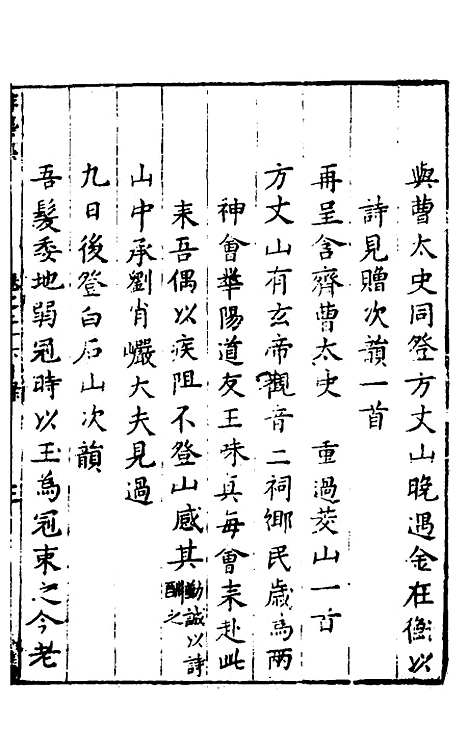 與曹太史同登方丈山晚遇金在衡以
詩見贈次韻一首
再呈含齋曹太史　重過茭山一首
方丈山有玄帝觀音二祠鄉民歲為兩
神會華陽道友王味真每會來赴此
來吾偶以疾阻不登山感其勤誠以詩酬之
山中承劉肖巖大夫見過
九日後登白石山次韻
吾髮委地弱冠時以玉為冠束之今老